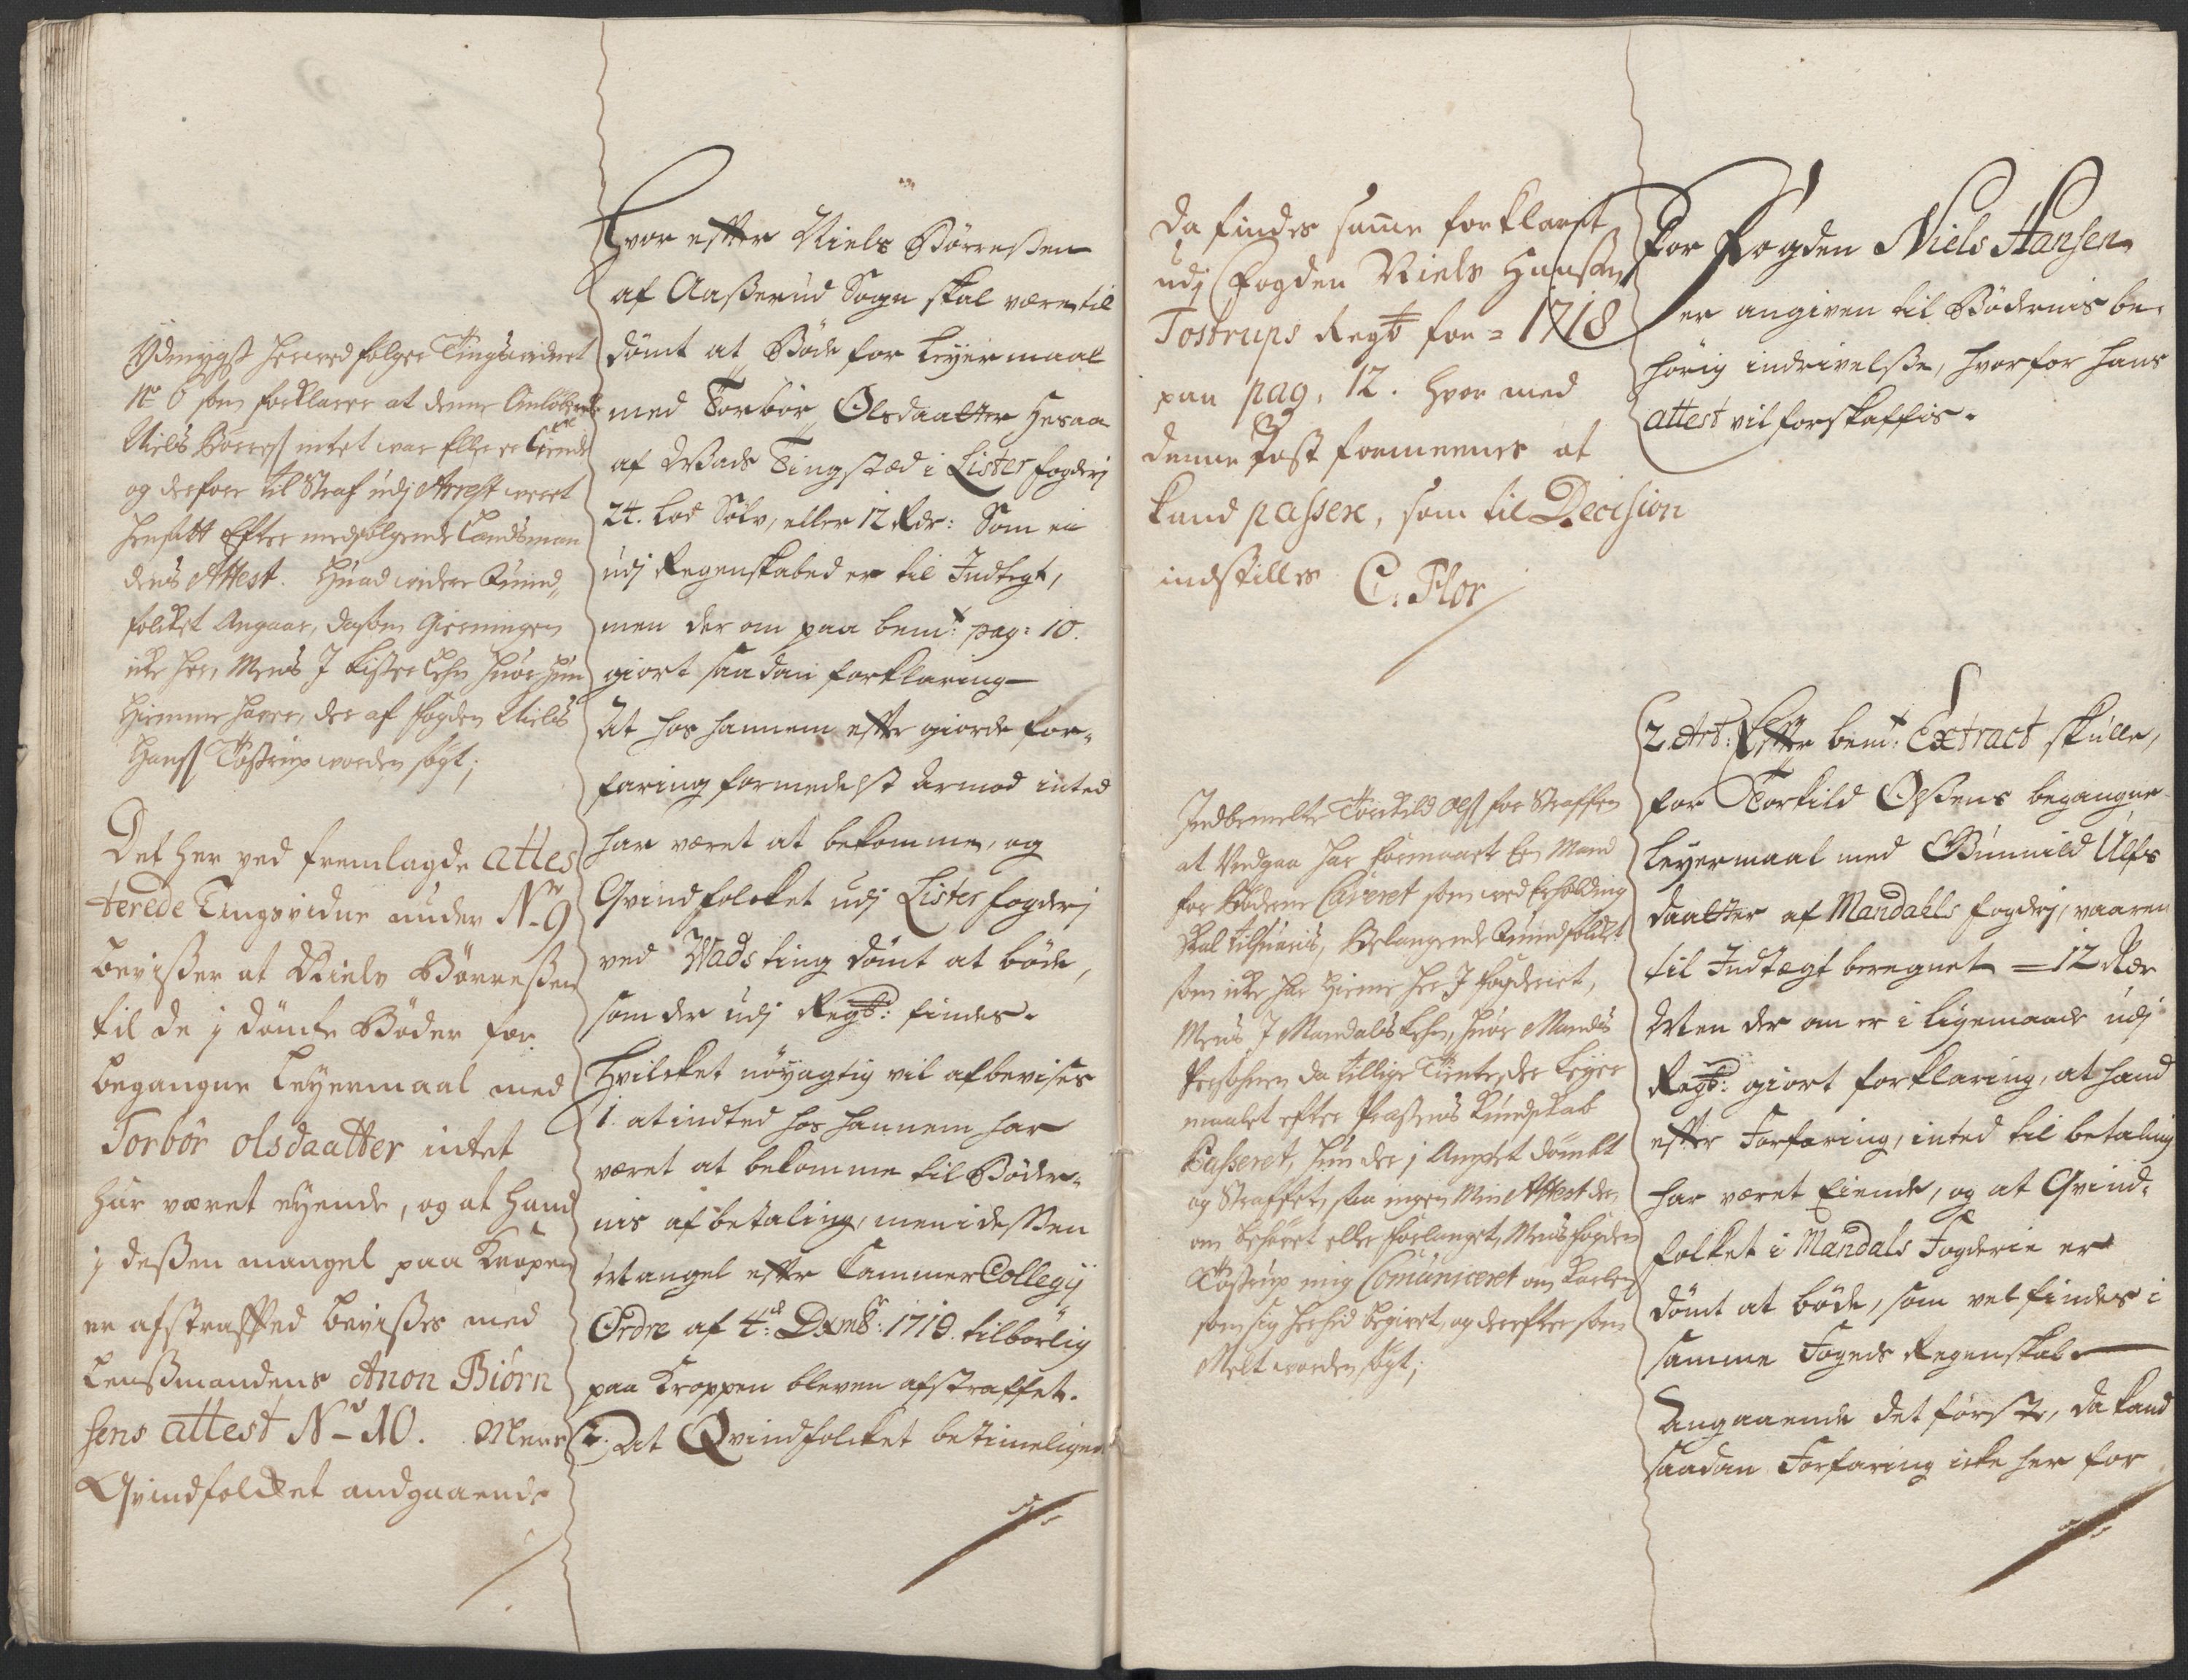 Ydmygst herved følger Tingsvidnet
No 6 som forklarer at denne
Niels Børres intet var Eller er Eyende
og derfore til Straf udj Arrest veret
hensatt Efter medfølgende Landsman
dens Attest. Huad videre Quind„
folcket Angaar, da som Gierningen
icke her, Mens J Lister Lehn huor hun
Hiemme hører, der af fogden Niels
Hans Tostrup worden søgt;
Det her ved fremlagde attes
terede Tingsvidne under No 9
bevisser at Niels Børressen
til de j dømte Bøder for
begangne Leyermaal med
Torbør olsdaatter intet
har været eyende, og at hand
j dessen mangel paa Kropen
er afstraffed bevisses med
Lensmandens Anon Biörn
sens attest No 10. Mens
Qvindfolcket andgaaende
Hvor efter Niels Børressen
af Aasserud Sogn skal være til
dømt at Bøde for Leyermaal
med Torbør Olsdaatter Hesaa
af Wads Tingstæd i Lister fogderj
24. Lod Sølv, eller 12 Rdr: Som ei
udj Regenskabed er til Indtegt,
men der om paa bemt: pag: 10.
giort saadan forklaring
At hos hannem efter giorde for„
faring formedelst Armod inted
har været at bekomme, og
Qvindfolcket udj Lister fogderj
ved Wads ting dømt at bøde,
som der udj Regsb: findes.
Hvilcket nøyagtig vil afbevises
1. at indted hos hannem har
været at bekomme til Bøder„
nis af betaling, men i dessen
Mangel efter Cammer Collegij
Ordre af 4de Dxmbr: 1710. tilbørlig
paa Kroppen bleven afstraffet.
2. At Qvindfolcket betimeligen
Da findes samme forklaret
udj Fogden Niels Hanssen
Tostrups Regsb for = 1718
paa pag. 12. hvor med
denne Post formeenes at
kand passere, som til Decision
indstilles C. Flor
Indbemelte Torckild Ols for Straffen
at Undgaa har formaaet En Mand
for Bøderne Caveret som ved Erholding
skal tilsvaris, Belangende Quindfolcket
som icke har Hieme her J fogderiet,
Mens J Mandals Lehn, huor Mands
Persohnen da tillige Tiente, der Leyer
maalet efter Præstens Kundskab
Passeret, hun der j Ampted dømbt
og Straffet, saa ingen Min Attest der
om behøvet eller forlanget, Mens fogden
Tostrup mig Comuniceret om Karlen
som sig herhid begivet, og derefter som
Melt worden søgt;
For Fogden Niels Hansen
er angiven til Bødernis be„
hørig indrivelse, hvorfor hans
attest vil forskaffis.
2. Art: Efter bemt: Extract skulle,
for Torkild Olssens begangne
Leyermaal med Gunnild Ulfs
daatter af Mandahls fogderj, vaaren
til Indtægt beregnet = 12 Rdr
Men der om er i ligemaade udj
Regsb: giort forklaring, at hand
efter Forfaring, inted til betaling
har været Eiende, og at Qvind„
folket i Mandals Fogderie er
dømt at bøde, som vel findes i
samme Fogeds Regenskab
Angaaende det første, da kand
saadan Forfaring icke her for